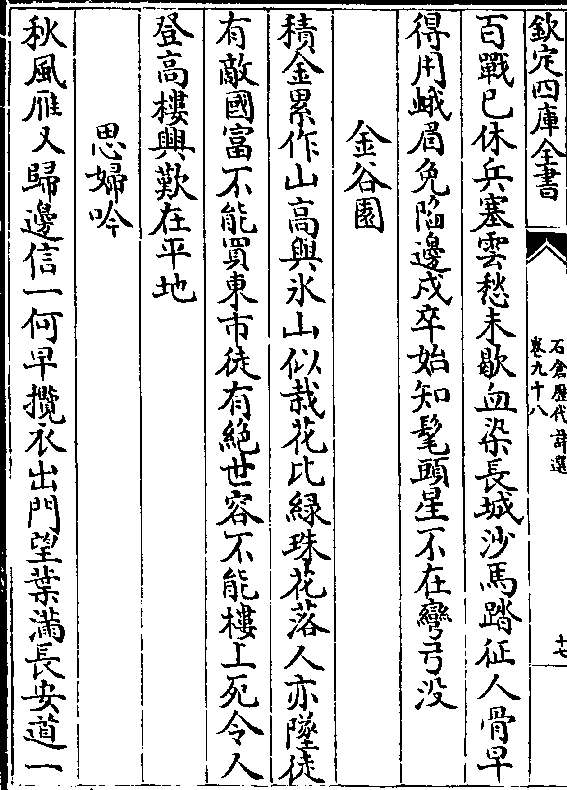 欽定四庫全書
石倉歷代詩選
卷九十八
十七
百戰已休兵塞雲愁未歇血染長城沙馬踏征人骨早
得用蛾眉免陷邊戍卒始知髦頭星不在彎弓没
金谷園
積金累作山高與氷山似栽花比緑珠花落人亦墜徒
有敵國富不能買東市徒有絶世容不能樓上死令人
登高樓興歎在平地
思婦吟
秋風雁又歸邊信一何早攬衣出門望葉滿長安道一